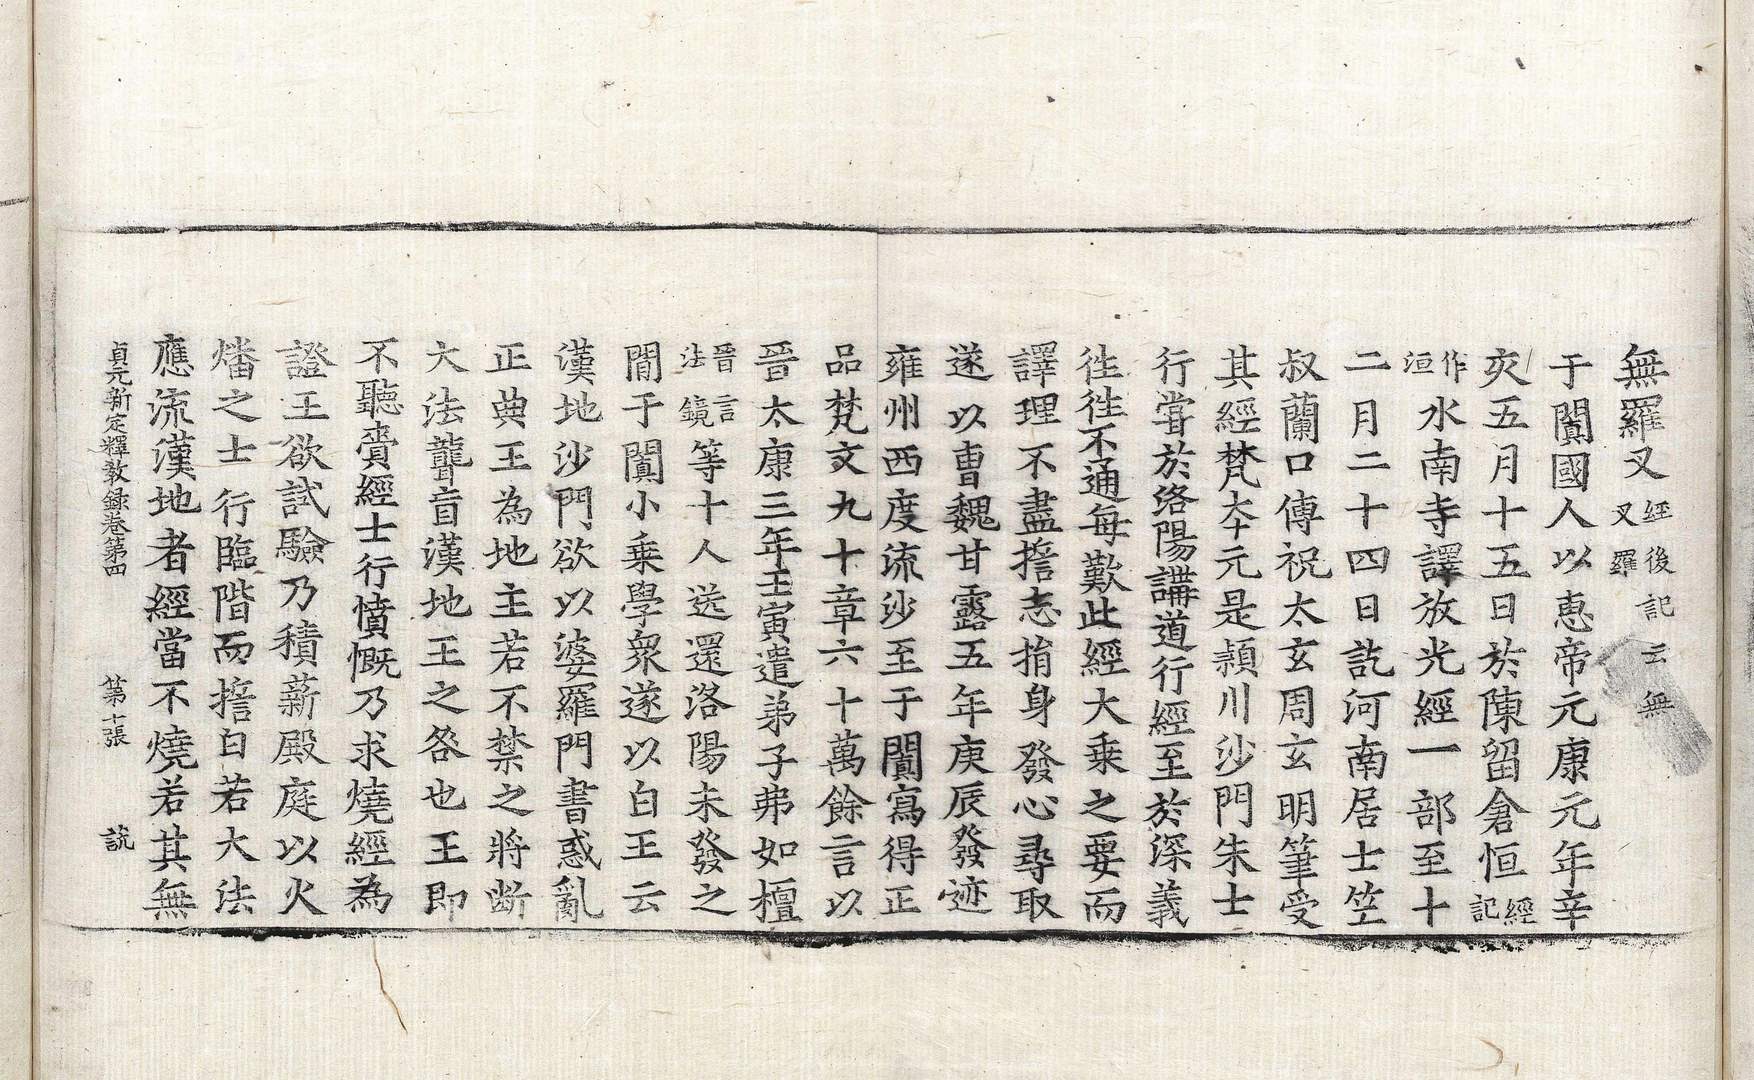 無羅叉經後記云無叉羅
于闐國人以惠帝元康元年辛
亥五月十五日於陳留倉恒經記
作洹水南寺譯放光經一部至十
二月二十四日訖河南居士竺
叔蘭口傳祝太玄周玄明筆受
其經梵夲元是潁川沙門朱士
行甞於洛陽講道行經至於深義
徃徃不通每歎此經大乗之要而
譯理不盡撸志捐身發心尋取
遂以曹魏甘露五年庚辰發迹
雍州西度流沙至于闐寫得正
品梵文九十章六十萬餘言以
晉太康三年壬寅遣弟子弗如檀
晉言法鏡等十人送還洛陽未發之
閒于闐小乗學衆遂以白王云
漢地沙門欲以婆羅門書惑亂
正典王為地主若不禁之將断
大法聾盲漢地王之咎也王即
不聽賷經士行憤慨乃求燒經為
證王欲試驗乃積薪殿庭以火
燔之士行臨階而撸曰若大法
應流漢地者經當不燒若其無
貞元新定釋教録卷第四 第十張 說